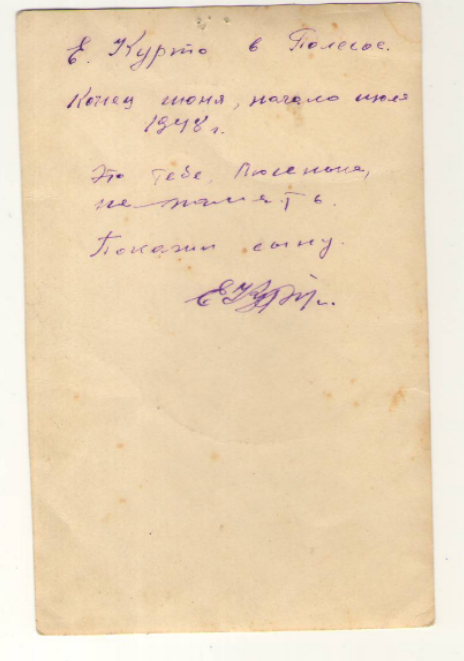 Е. Курто в Полесье.
Конец июня, начало июля
1948 г.
Это тебе, Люсенька,
на память.
Покажи сыну.